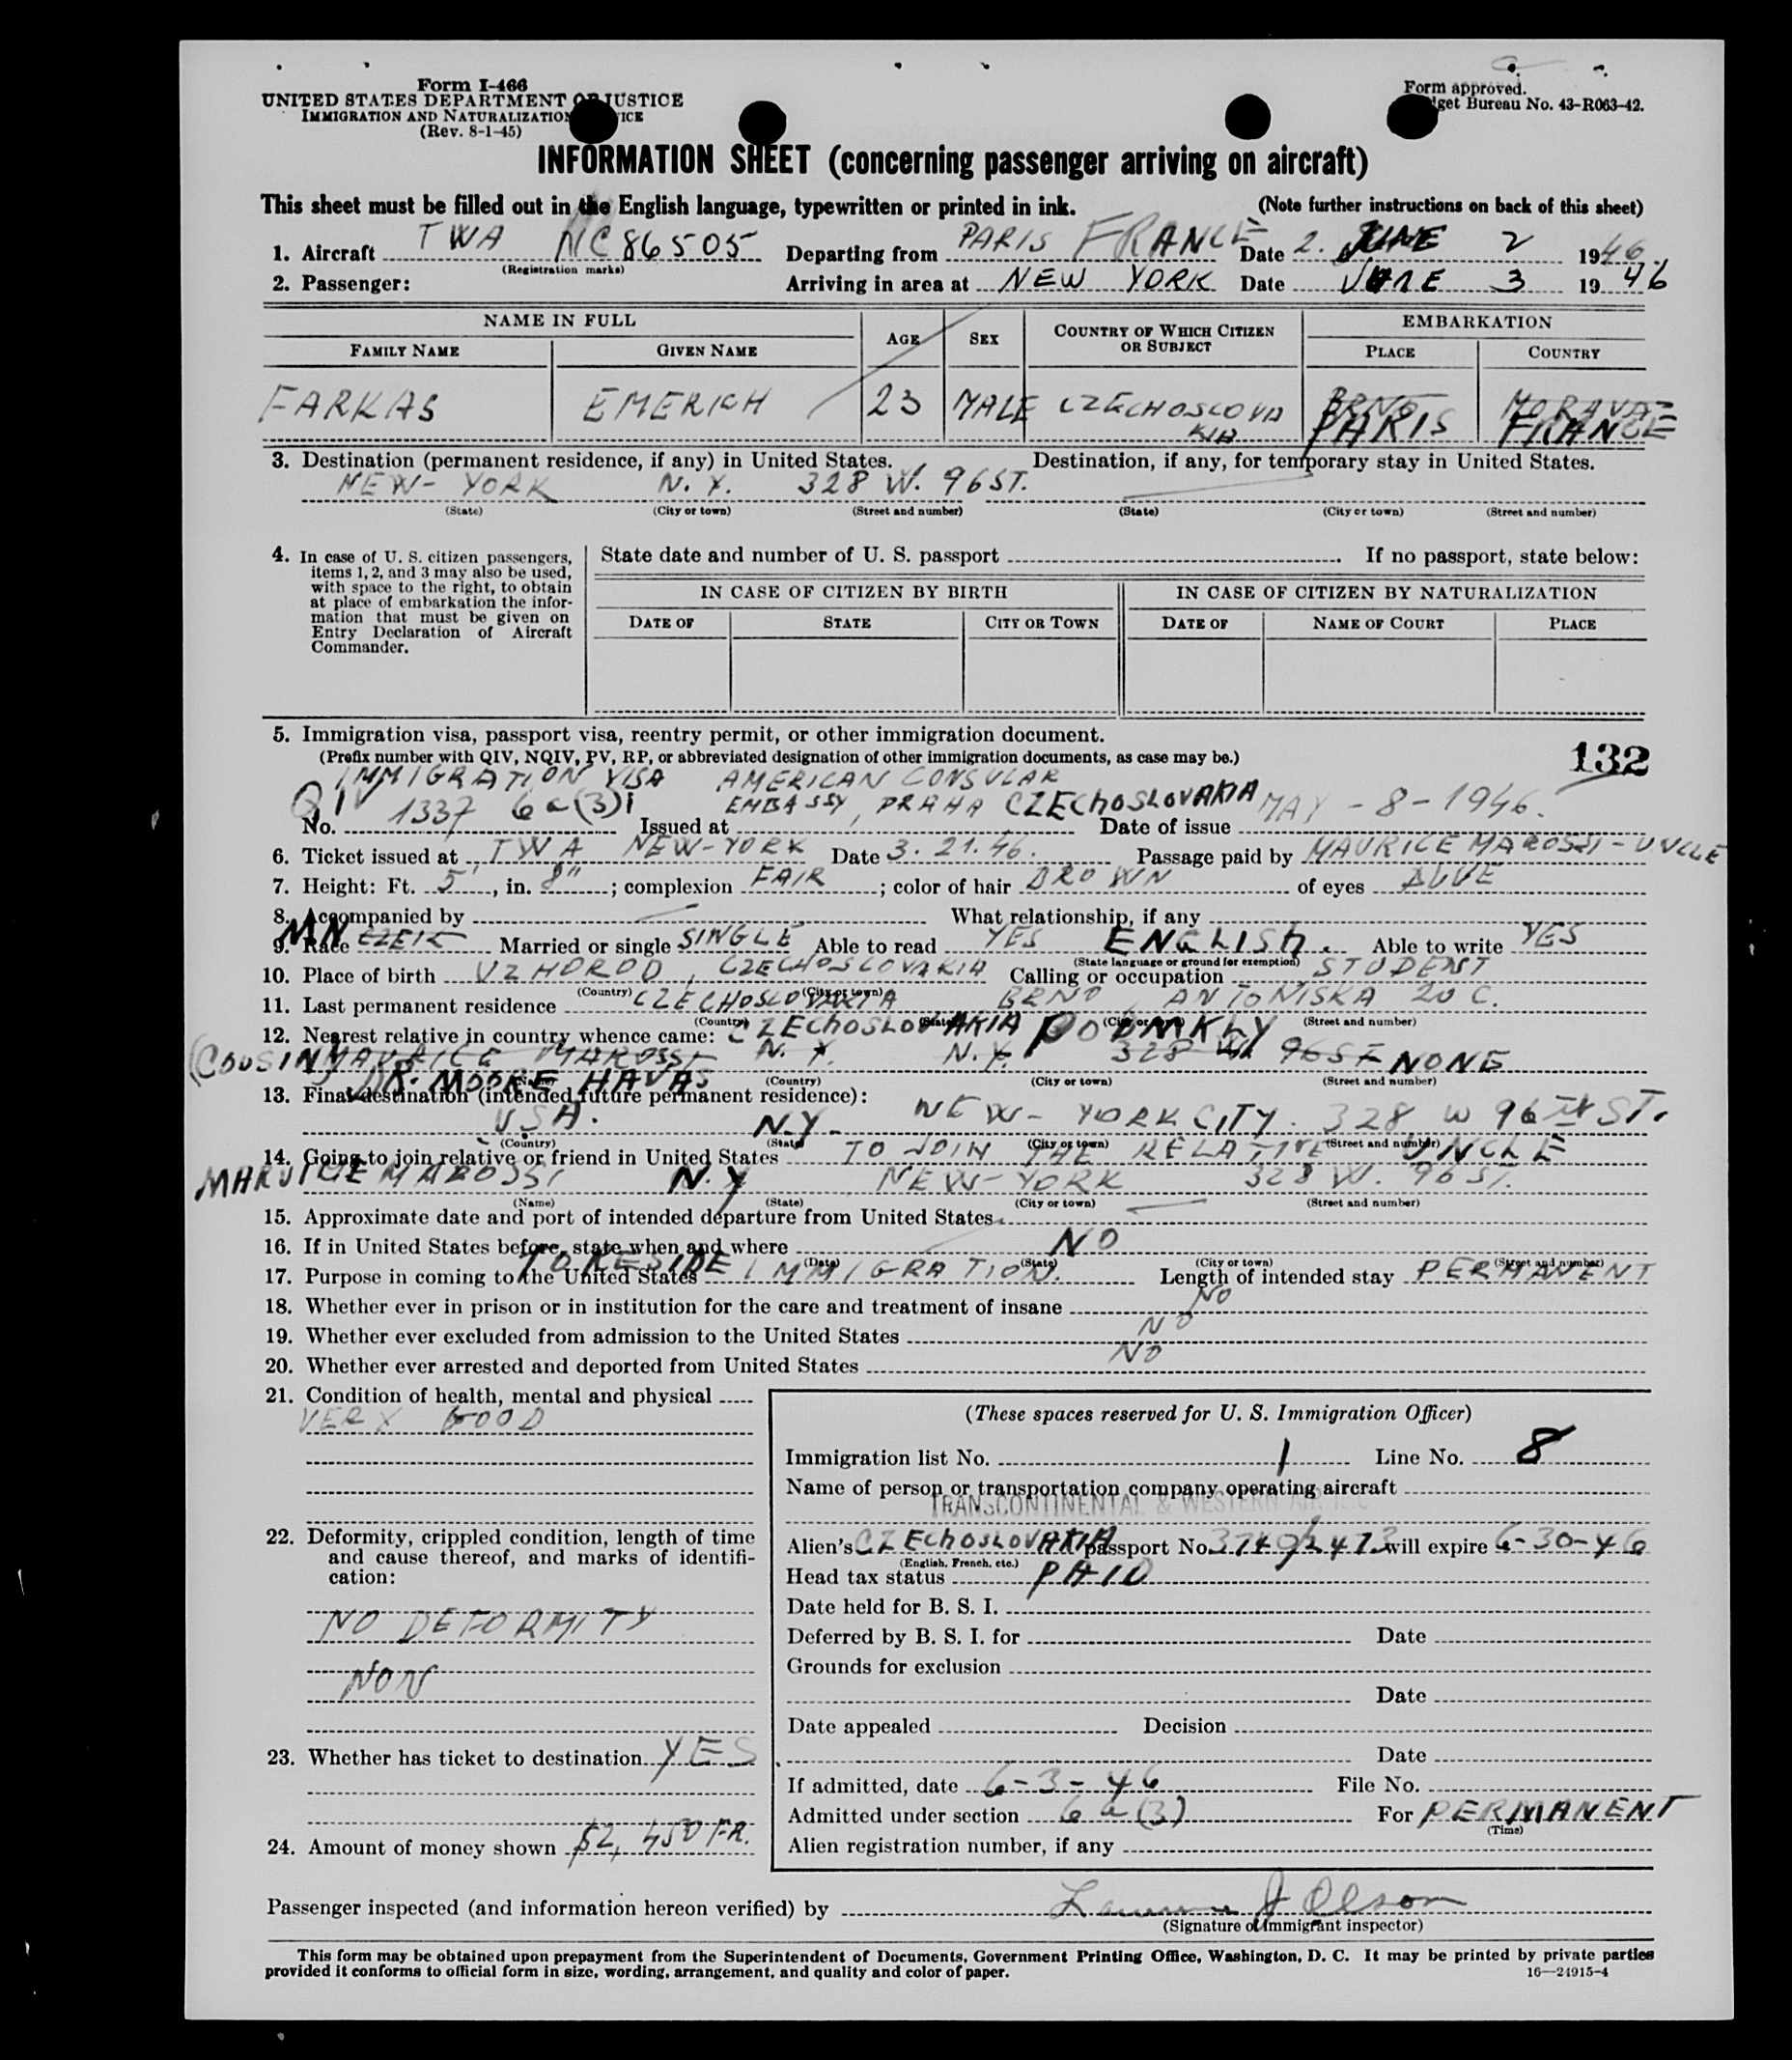 Form I-466
UNITED STATES DEPARTMENT OF JUSTICE
IMMIGRATION AND NATURALIZATION SERVICE
(Rev. 8-1-45)
Form approved.
Budget Bureau No. 43-R063-42.
INFORMATION SHEET (concerning passenger arriving on aircraft)
This sheet must be filled out in the English language, typewritten or printed in ink. (Note further instructions on back of this sheet)
1. Aircraft TWA NC 86505 Departing from PARIS FRANCE Date 2. JUNE 2 1946
(Registration marks)
2. Passenger: Arriving in area at NEW YORK Date JUNE 3 1946
NAME IN FULL AGE SEX COUNTRY OF WHICH CITIZEN OR SUBJECT EMBARKATION
FAMILY NAME GIVEN NAME PLACE COUNTRY
FARKAS EMERICH 23 MALE CZECHOSLOVAKIA BRNO MORAVA
PARIS FRANCE
3. Destination (permanent residence, if any) in United States. Destination, if any, for temporary stay in United States.
NEW-YORK N.Y. 328 W. 96 ST.
(State) (City or town) (Street and number) (State) (City or town) (Street and number)
4. In case of U. S. citizen passengers, items 1, 2, and 3 may also be used, with space to the right, to obtain at place of embarkation the information that must be given on Entry Declaration of Aircraft Commander.
State date and number of U. S. passport . If no passport, state below:
IN CASE OF CITIZEN BY BIRTH IN CASE OF CITIZEN BY NATURALIZATION
DATE OF STATE CITY OR TOWN DATE OF NAME OF COURT PLACE
5. Immigration visa, passport visa, reentry permit, or other immigration document.
(Prefix number with QIV, NQIV, PV, RP, or abbreviated designation of other immigration documents, as case may be.)
132
IMMIGRATION VISA AMERICAN CONSULAR
No. QIV 1337 6a(3)i Issued at EMBASSY, PRAHA CZECHOSLOVAKIA Date of issue MAY-8-1946.
6. Ticket issued at TWA NEW-YORK Date 3.21.46. Passage paid by MAURICE MAROSSI-UNCLE
7. Height: Ft. 5', in. 8"; complexion FAIR; color of hair BROWN of eyes BLUE
8. Accompanied by What relationship, if any
9. Race MN CZEIK Married or single SINGLE Able to read YES ENGLISH. Able to write YES
(State language or ground for exemption)
10. Place of birth UZHOROD, CZECHOSLOVAKIA Calling or occupation STUDENT
(Country) (City or town)
11. Last permanent residence CZECHOSLOVAKIA BRNO, ANTONISKA 20 C.
(Country) (State) (City or town) (Street and number)
12. Nearest relative in country whence came: CZECHOSLOVAKIA PODMKLY
(COUSIN) MAURICE MAROSSI N.Y. N.Y. 328 W. 96 ST NONE
DR. MOORE HAVAS
(Name) (Country) (City or town) (Street and number)
13. Final destination (intended future permanent residence):
USA. N.Y. NEW-YORK CITY. 328 W 96TH ST.
(Country) (State) (City or town) (Street and number)
14. Going to join relative or friend in United States TO JOIN THE RELATIVE UNCLE
MARUICE MAROSSI N.Y NEW-YORK 328 W. 96 ST.
(Name) (State) (City or town) (Street and number)
15. Approximate date and port of intended departure from United States
16. If in United States before, state when and where NO
(Date) (State) (City or town) (Street and number)
17. Purpose in coming to the United States TO RESIDE IMMIGRATION. Length of intended stay PERMANENT
18. Whether ever in prison or in institution for the care and treatment of insane NO
19. Whether ever excluded from admission to the United States NO
20. Whether ever arrested and deported from United States NO
21. Condition of health, mental and physical
VERY GOOD
22. Deformity, crippled condition, length of time and cause thereof, and marks of identification:
NO DEFORMITY
NON
23. Whether has ticket to destination YES
24. Amount of money shown $2, 450 FR.
(These spaces reserved for U. S. Immigration Officer)
Immigration list No. 1 Line No. 8
Name of person or transportation company operating aircraft
TRANSCONTINENTAL & WESTERN AIR
Alien's CZECHOSLOVAKIA passport No. will expire 6-30-46
(English, French, etc.)
Head tax status PAID
Date held for B. S. I.
Deferred by B. S. I. for Date
Grounds for exclusion
Date
Date appealed Decision
Date
If admitted, date 6-3-46 File No.
Admitted under section 6a(3) For PERMANENT
(Time)
Alien registration number, if any
Passenger inspected (and information hereon verified) by Lawrence J Olson
(Signature of immigrant inspector)
This form may be obtained upon prepayment from the Superintendent of Documents, Government Printing Office, Washington, D. C. It may be printed by private parties
provided it conforms to official form in size, wording, arrangement, and quality and color of paper. 16—24915-4